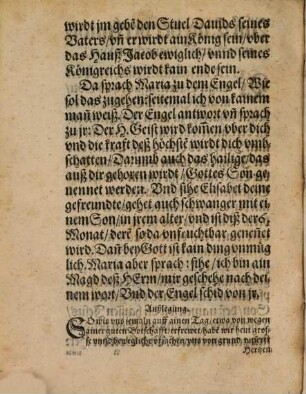 wirdt jm gebē den Stuel Dauids seines
Vaters/ vñ er wirdt ain König sein/ vber
das Hauß Jacob ewiglich/ vnnd seines
Königreichs wirdt kain ende sein.
Da sprach Maria zu dem Engel/ Wie
sol das zugehen: seitemal ich von kainem
mañ weiß. Der Engel antwort vñ sprach
zu jr: Der H. Geist wird kom̃en vber dich
vnd die krafft deß höchstē wirdt dich vmb-
schatten/ Darumb auch das hailige/ das
auß dir geboren wirdt/ Gottes Son ge-
nennet werden. Vnd sihe Elisabet deine
gefreundte/ gehet auch schwanger mit ei-
nem Son/ in jrem alter/ vnd ist diß der 6.
Monat/ derē so da vnfruchtbar geneñet
wird. Dañ bey Gott ist kain ding vnmüg
lich. Maria aber sprach: sihe/ ich bin ain
Magd deß HErrn/ mir geschehe nach dei-
nem wort/ Vnd der Engel schid von jr.
Außlegung.
SO wir vns jemaln auff ainen Tag/ etwa von wegen
ainer guten Botschafft/ erfrewet/ habē wir hein gros-
se vnd bewegliche vrsachen/ vns von grund vnserst
Hertzen